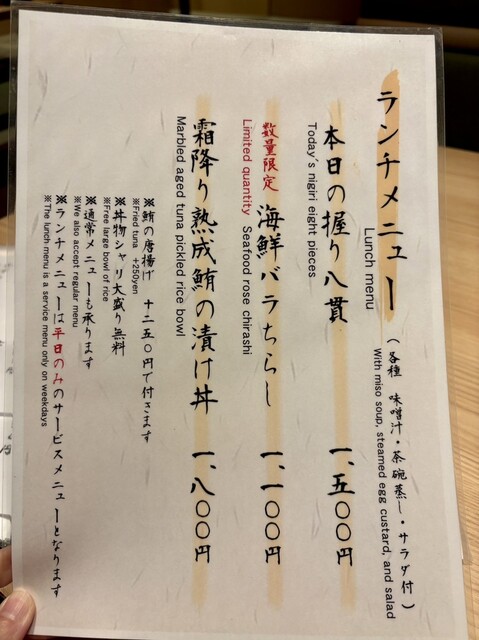 ランチメニュー
Lunch menu
(各種 味噌汁・茶碗蒸し・サラダ付)
With miso soup, steamed egg custard, and salad
本日の握り八貫 一、五〇〇円
Today's nigiri eight pieces
数量限定 海鮮バラちらし 一、一〇〇円
Limited quantity Seafood rose chirashi
霜降り熟成鮪の漬け丼 一、八〇〇円
Marbled aged tuna pickled rice bowl
※鮪の唐揚げ 十二五〇円で付きます
※Fried tuna +250yen
※丼物シャリ大盛り無料
※Free large bowl of rice
※通常メニューも承ります
※We also accept regular menu
※ランチメニューは平日のみのサービスメニューとなります
※The lunch menu is a service menu only on weekdays